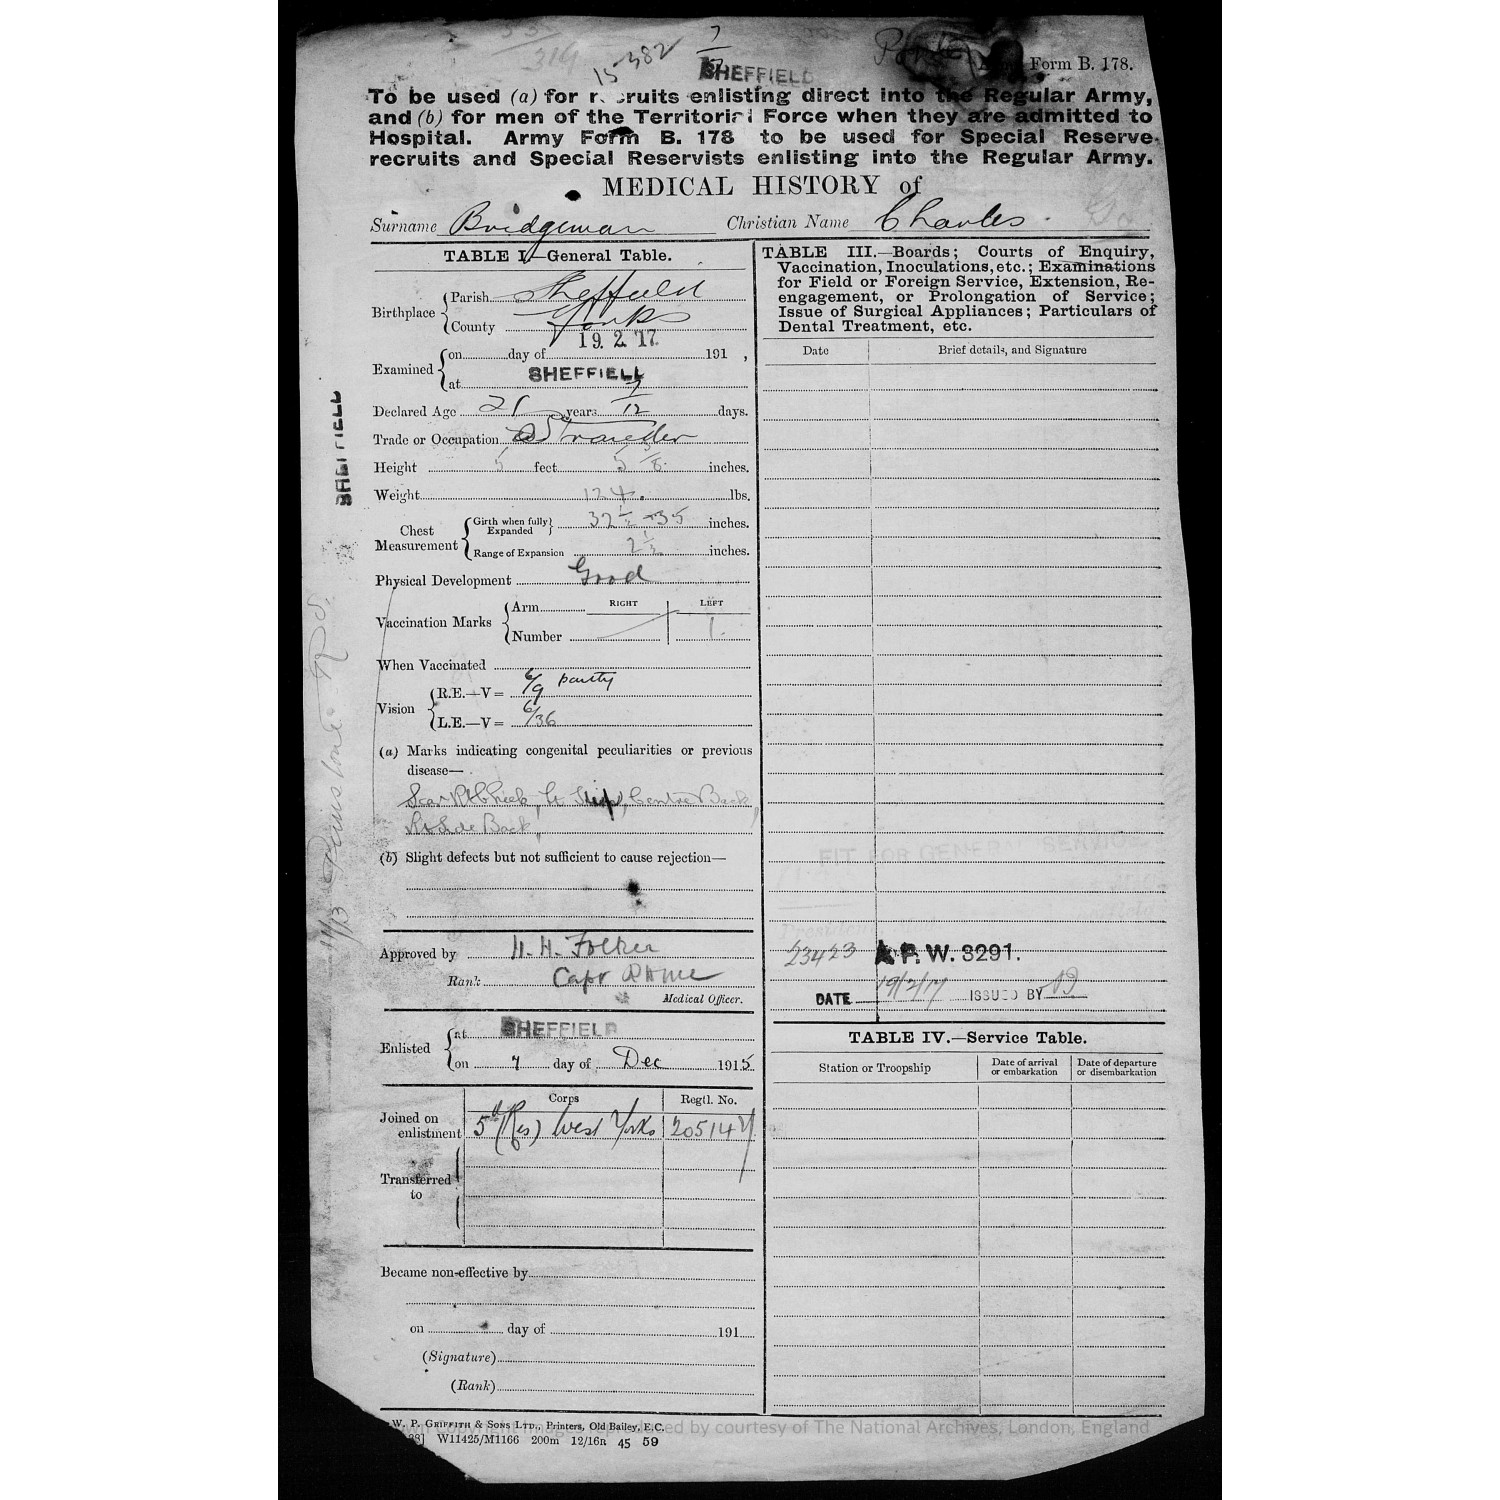 15-382
7
SHEFFIELD
Form B. 178.
To be used (a) for recruits enlisting direct into the Regular Army,
and (b) for men of the Territorial Force when they are admitted to
Hospital. Army Form B. 178 to be used for Special Reserve
recruits and Special Reservists enlisting into the Regular Army.
MEDICAL HISTORY of
Surname Bridgeman Christian Name Charles
TABLE I.—General Table.
Birthplace Parish Sheffield
County Yorks
19. 2. 17.
Examined on day of 191 ,
at SHEFFIELD
Declared Age 21 years 7/12 days.
Trade or Occupation
Height 5 feet 5 inches.
Weight 124 lbs.
Chest Measurement Girth when fully Expanded 32½-35 inches.
Range of Expansion 2½ inches.
Physical Development Good
Vaccination Marks Arm RIGHT LEFT
Number 1
When Vaccinated
Vision R.E.—V= 6/9 partly
L.E.—V= 6/36
(a) Marks indicating congenital peculiarities or previous
disease—
Scar Rt Cheek, Lt Hip, Centre Back,
Side Back,
(b) Slight defects but not sufficient to cause rejection—
Approved by
Rank Capt RAMC
Medical Officer.
Enlisted at SHEFFIELD
on 7 day of Dec 1915
Corps Regtl. No.
Joined on enlistment 5th (Res) West Yorks 205147
Transferred
to
Became non-effective by
on day of 191
(Signature)
(Rank)
SHEFFIELD
TABLE III.—Boards; Courts of Enquiry,
Vaccination, Inoculations, etc.; Examinations
for Field or Foreign Service, Extension, Re-
engagement, or Prolongation of Service;
Issue of Surgical Appliances; Particulars of
Dental Treatment, etc.
Date Brief details, and Signature
FIT FOR GENERAL SERVICE
23423 A.F.W. 3291.
DATE 19/2/17 ISSUED BY
TABLE IV.—Service Table.
Station or Troopship Date of arrival or embarkation Date of departure or disembarkation
W. P. GRIFFITH & SONS LTD., Printers, Old Bailey, E.C.
W11425/M1166 200m 12/16R 45 59
Copyright images reproduced by courtesy of The National Archives, London, England